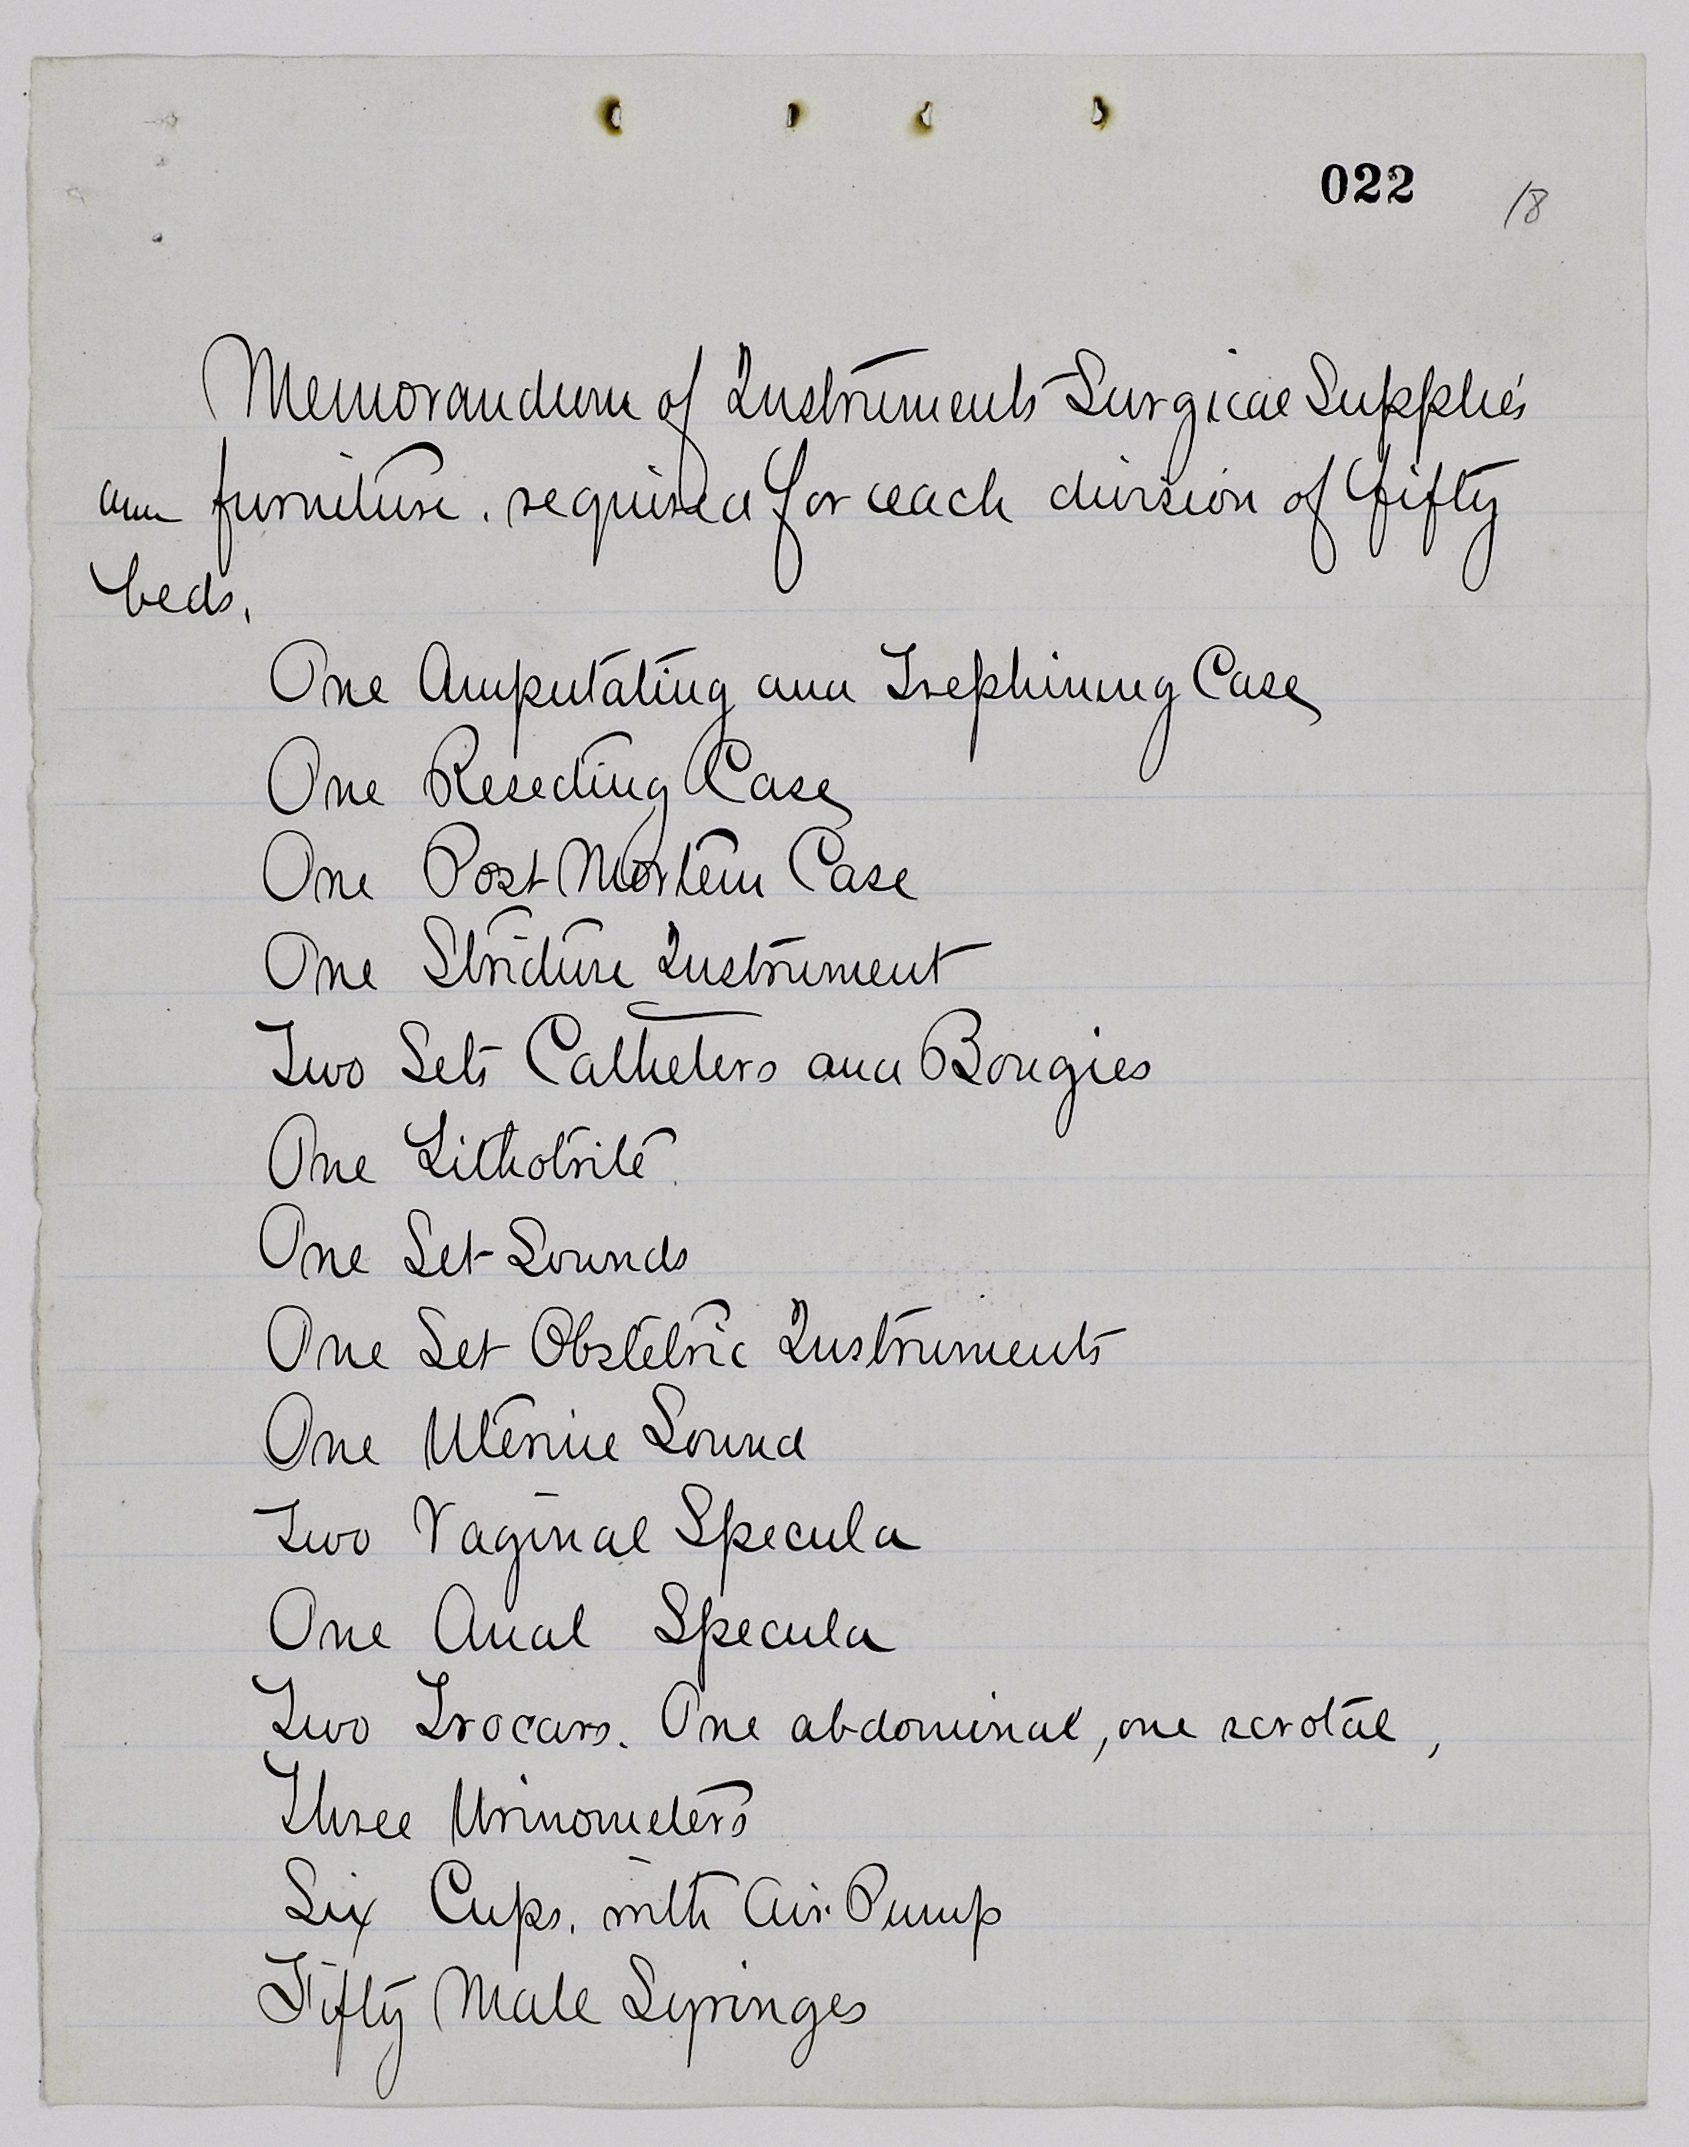 022 18
Memorandum of Instruments Surgical Supplies
and furniture. required for each division of fifty
beds.
One Amputating and Trephining Case
One Resecting Case
One Post Mortem Case
One Stricture Instrument
Two Sets Catheters and Bougies
One Lithotrite.
One Set Sounds
One Set Obstetric Instruments
One Uterine Sound
Two Vaginal Specula
One Anal Specula
Two Trocars. One abdominal, one scrotal,
Three Urinometers
Six Cups. with Air Pump
Fifty Male Syringes